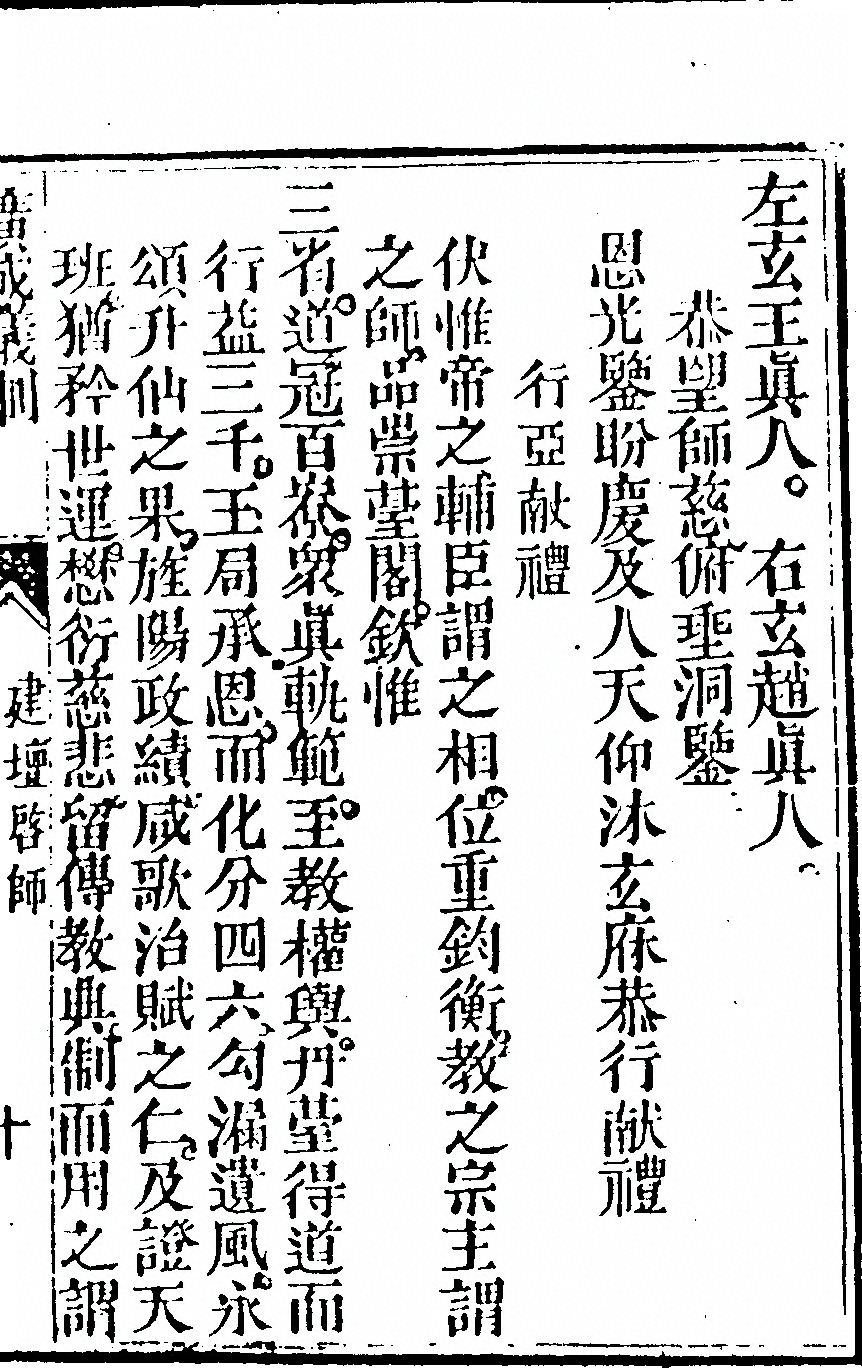 左玄王眞人。右玄趙眞人。
恭望師慈俯垂洞鑒
恩光鑒盼慶及人天仰沐玄庥恭行献禮
行亞献禮
伏惟帝之輔臣謂之相位重鈞衡教之宗主謂
之師品崇臺閣欽惟
三省道冠百寮衆眞軌範至教權輿丹臺得道而
行益三千玉局承恩而化分四六勾漏遺風永
頌升仙之果旌陽政績咸歌治賦之仁及證天
班猶矜世運懋衍慈悲留傳教典制而用之謂
廣成儀制 建壇啓師 十